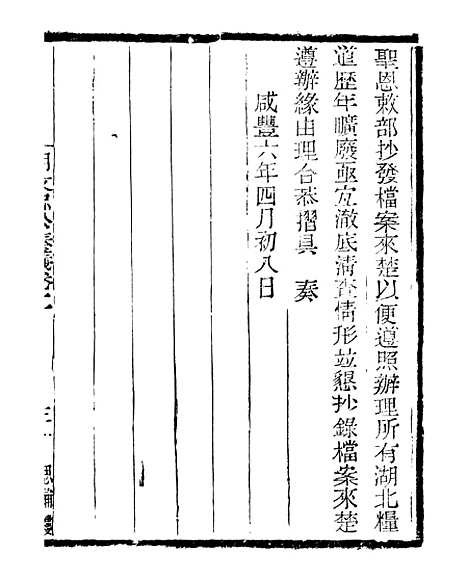 聖恩敕部抄發檔案來楚以便遵照辦理所有湖北糧
道歷年曠廢亟宜澈底清查情形並懇抄錄檔案來楚
遵辦緣由理合恭摺具　奏
咸豐六年四月初八日